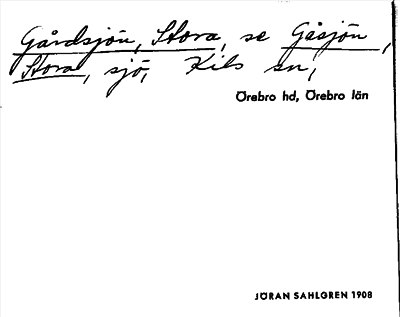 Gårdsjön, Stora, se Gåsjön,
Stora, sjö, Kils sn,
Örebro hd, Örebro län
JÖRAN SAHLGREN 1908